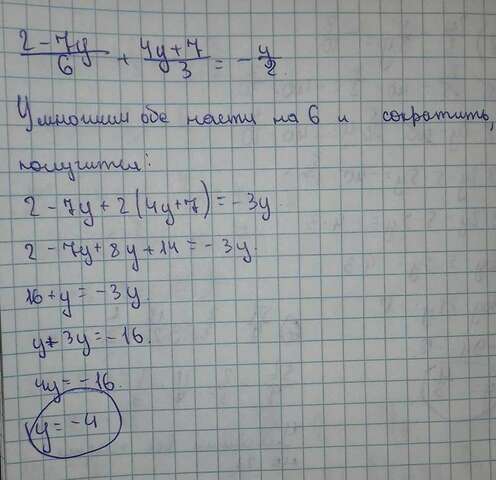 (2 - 7y)/6 + (4y + 7)/3 = - y/2.
Умножим обе части на 6 и сократить,
получится:
2 - 7y + 2(4y+7) = - 3y.
2 - 7y + 8y + 14 = - 3y.
16 + y = - 3y
y + 3y = - 16.
4y = - 16.
y = - 4